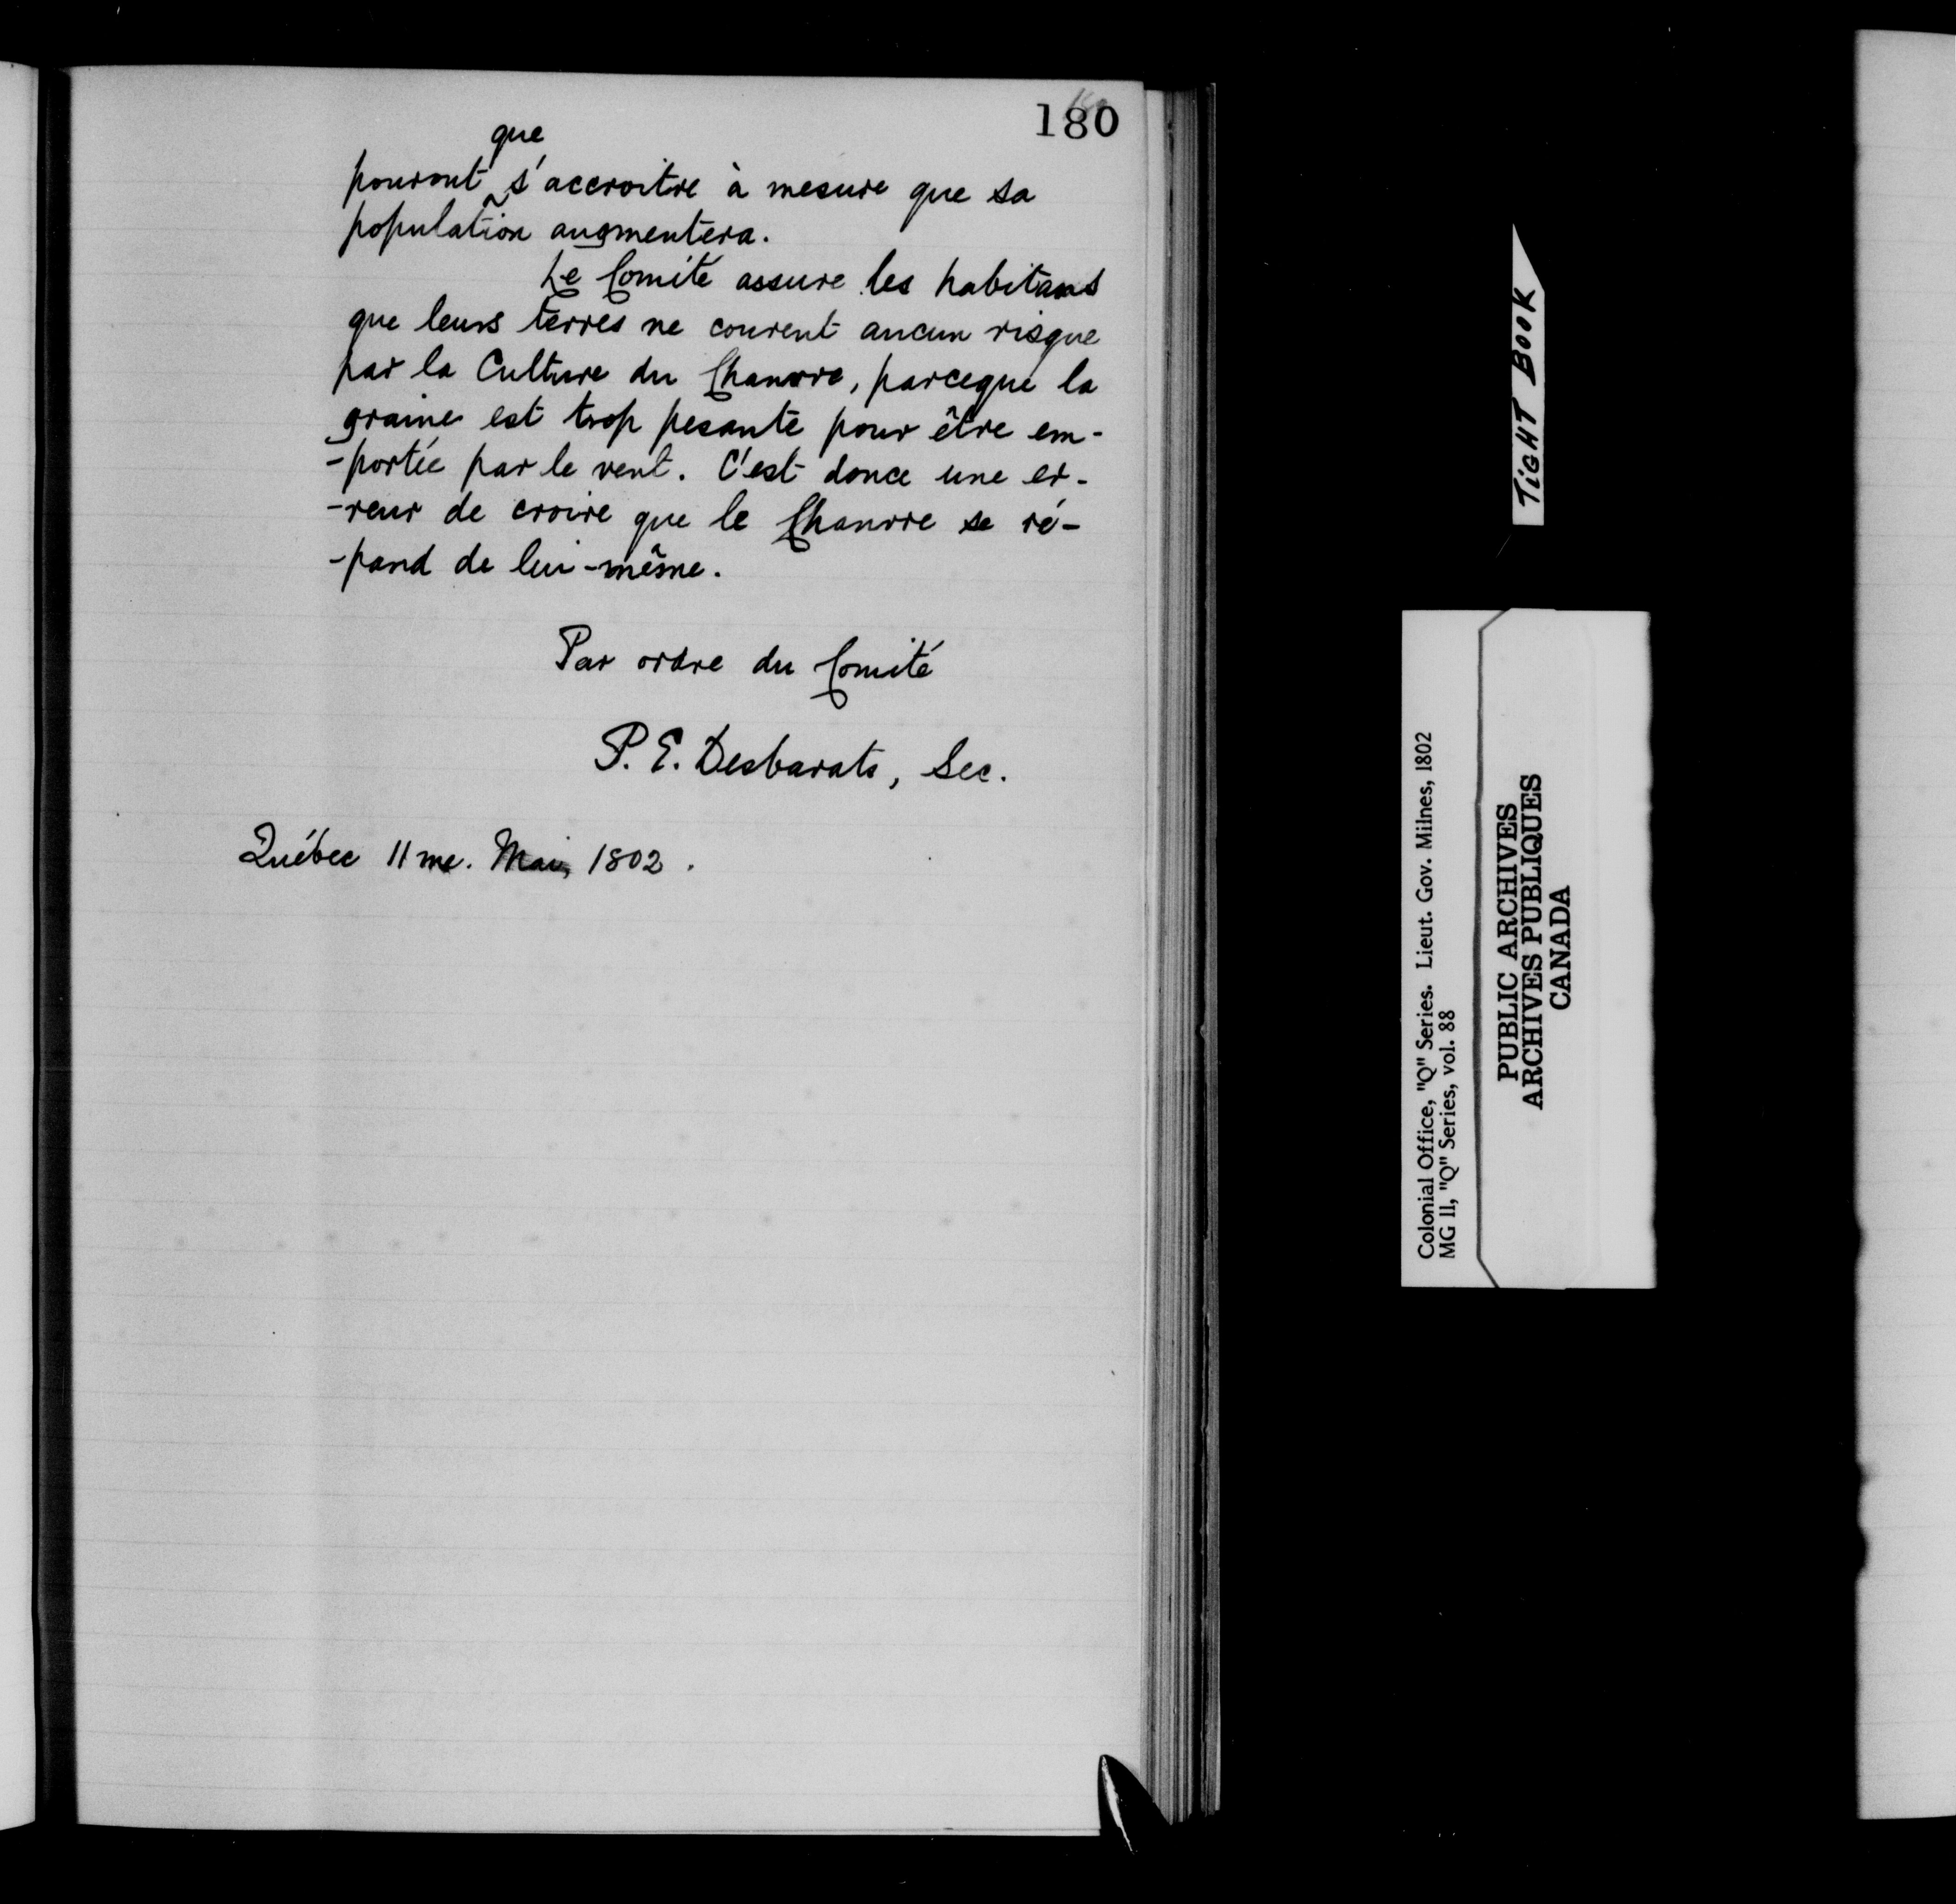 180
que
pouront s'accroitre à mesure que sa
population augmentera.
Le Comité assure les habitans
que leurs terres ne courent aucun risque
par la Culture du Chanvre, parceque la
graine est trop pesante pour être em-
-portée par le vent. C'est donce une er-
-reur de croire que le Chanvre se ré-
-pand de lui-même.
Par ordre du Comité
P. E. Desbarats, Sec.
Québec 11me. Mai, 1802.
TIGHT BOOK
Colonial Office, "Q" Series. Lieut. Gov. Milnes, 1802
MG 11, "Q" Series, vol. 88
PUBLIC ARCHIVES
ARCHIVES PUBLIQUES
CANADA